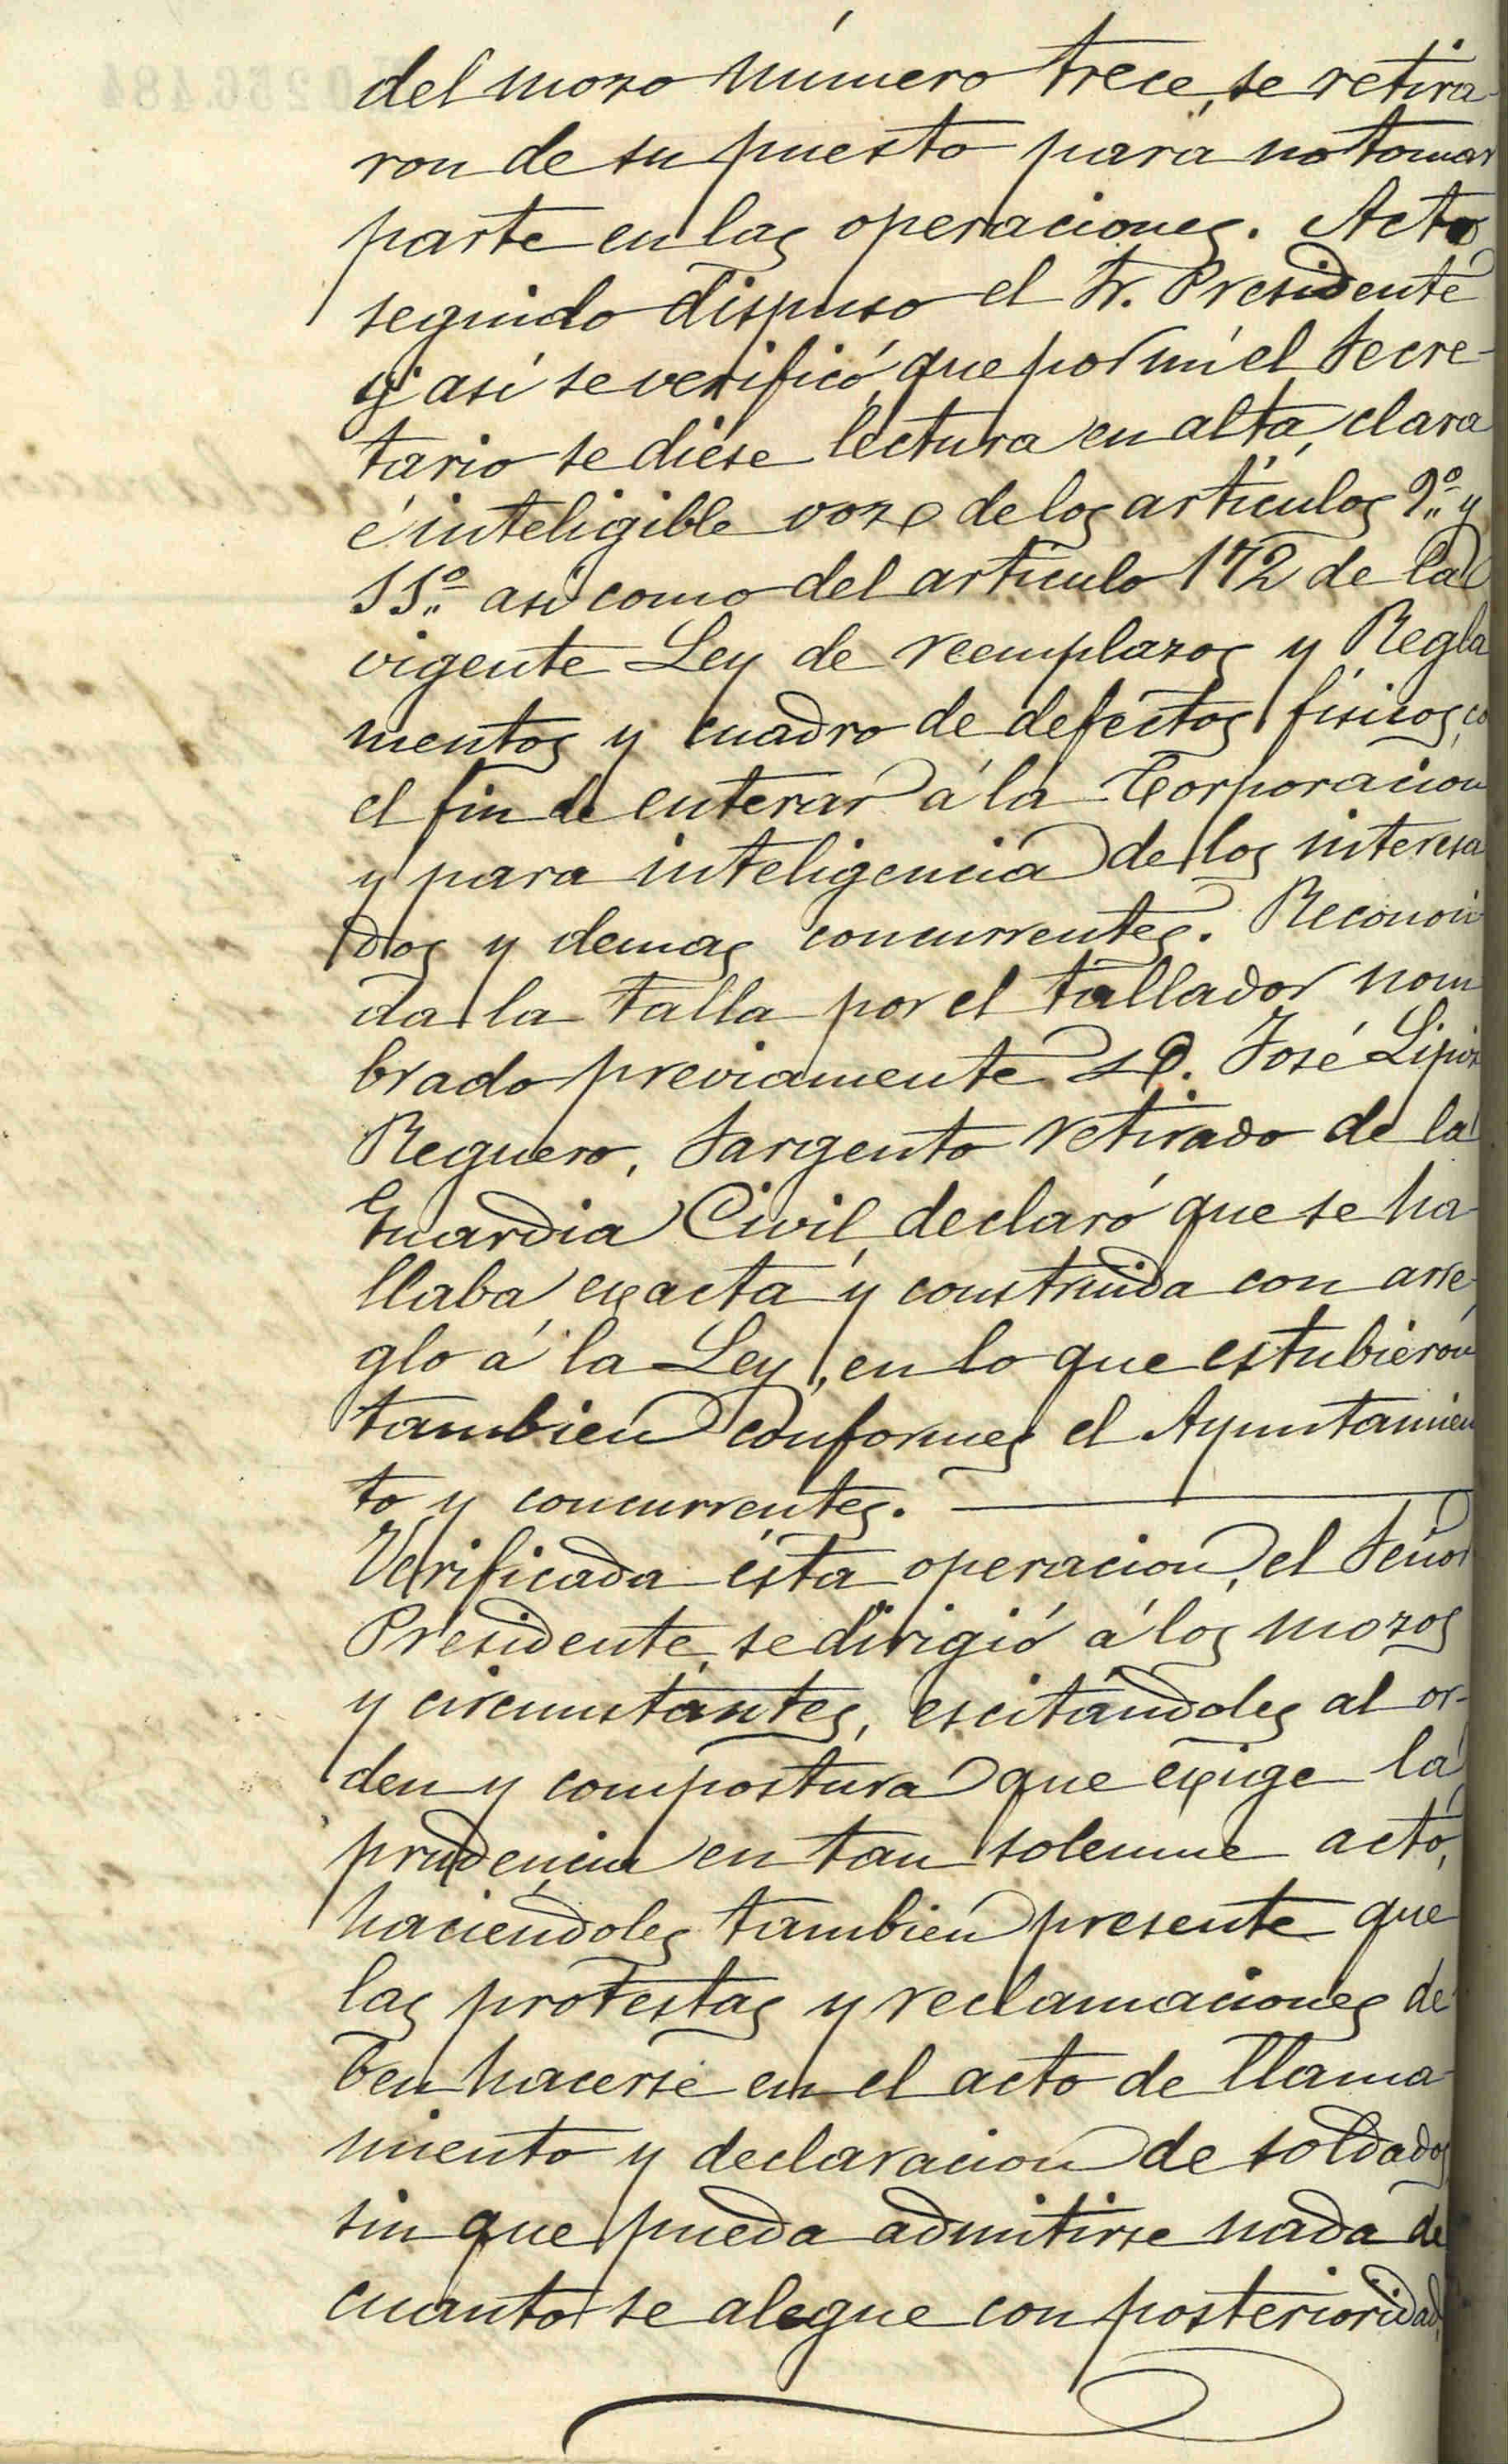 del mozo número trece, se retira-
ron de su puesto para no tomar
parte en las operaciones. Acto
seguido dispuso el Sr. Presidente
y así se verificó, que por mí el Secre-
tario se diése lectura en alta, clara
é inteligible voz de los artículos 9.º y
11.º así como del artículo 172 de la
vigente Ley de reemplazos y Regla
mentos y cuadro de defectos físicos, co
el fin de enterar á la Corporacion
y para inteligencia de los interesa
dos y demas concurrentes. Reconoci
da la talla por el tallador nom
brado previamente D. José
Reguero, Sargento retirado de la
Guardia Civil, declaró que se ha-
llaba exacta y construida con arre-
glo á la Ley, en lo que estubieron
tambien conformes el Ayuntamien
to y concurrentes.
Verificada ésta operacion, el Señor
Presidente, se dirigió á los mozos
y circunstantes, escitándoles al or-
den y compostura que exige la
prudencia en tan solemne acto,
haciendoles tambien presente que
las protestas y reclamaciones de
ben hacerse en el acto de llama-
miento y declaracion de soldados
sin que pueda admitirse nada de
cuanto se alegue con posterioridad.